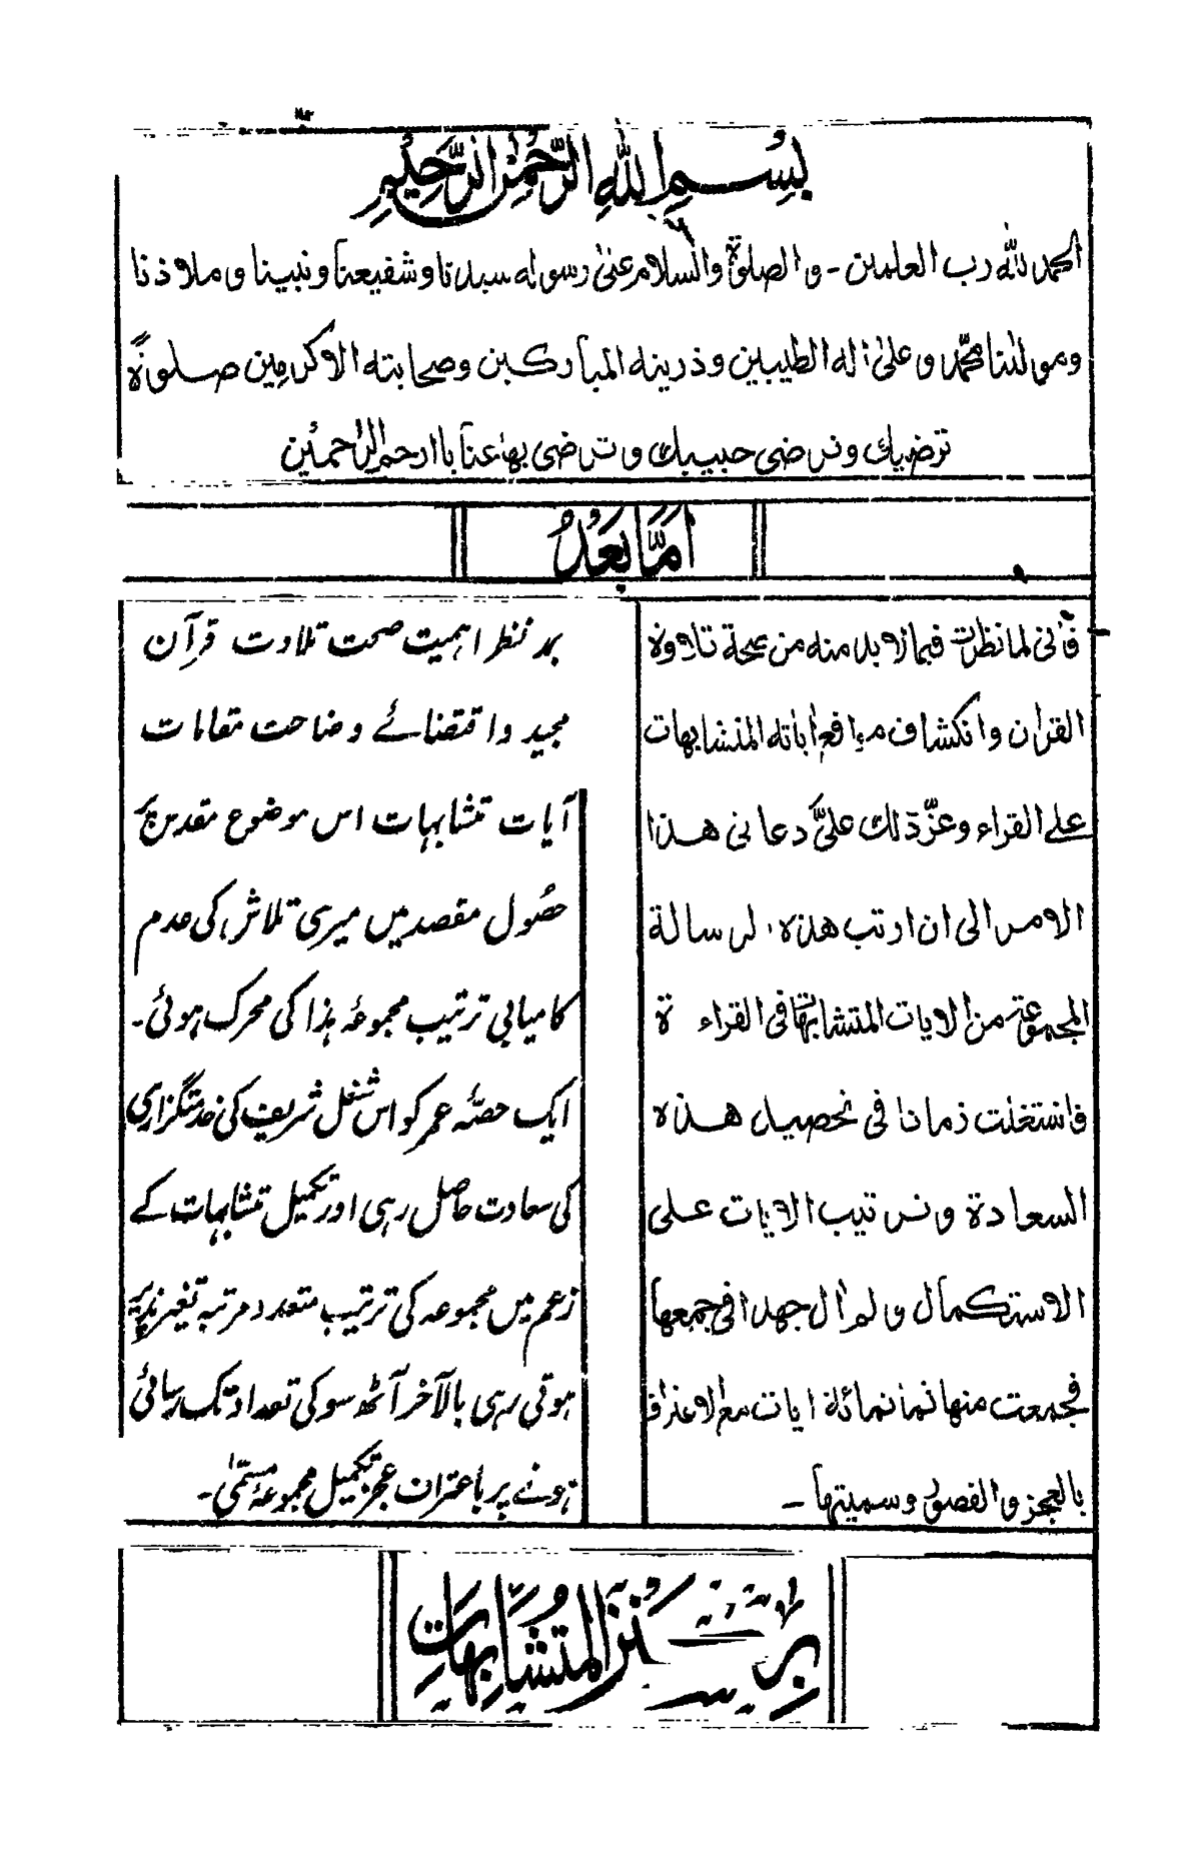 بِسْمِ اللهِ الرَّحْمٰنِ الرَّحِيْمِ
الحمد للہ رب العلمین - و الصلوۃ والسلام علیٰ رسولہ سیدنا و شفیعنا و نبینا و ملاذنا
ومولٰنا محمّد و علیٰ اٰلہ الطیبین و ذریتہ المبارکین وصحابتہ الاکرمین صلوٰۃً
ترضیک وترضی حبیبک و ترضی بھا عنا یا ارحم الراحمین
اَمَّا بَعْدُ
فانی لما نظرت فیما لا بد منه من صحة تلاوة
القراٰن وانکشاف مواقع اٰیاته المتشابھات
علے القراء وعزّ ذلك علیَّ دعانی ھذا
الامر الی ان ارتب ھذہ الرسالة
المجموعة من الایات المتشابھة فی القراء ة
فاشتغلت زمانا فی تحصیل ھذه
السعادة و ترتیب الاٰیات علی
الاستکمال و لم اٰل جھدا فی جمعھا
فجمعت منھا ثمانمائة اٰیات مع الاعتراف
بالعجز و القصور وسمیتہا -
بمد نظر اہمیت صحت تلاوت قرآن
مجید و اقتضائے وضاحت مقامات
آیات متشابہات اس موضوع مقدس پر
حصُول مقصد میں میری تلاش کی عدم
کامیابی ترتیب مجموعۂ ہذا کی محرک ہوئی۔
ایک حصّہ عمر کو اس شغل شریف کی خدمتگزاری
کی سعادت حاصل رہی اور تکمیل متشابہات کے
زعم میں مجموعہ کی ترتیب متعدد مرتبہ تغیر پذیر
ہوتی رہی بالآخر آٹھ سو کی تعداد تک رسائی
ہونے پر باعتراف عجز تکمیل مجموعۂ مسمّیٰ۔
کنز المتشابہات